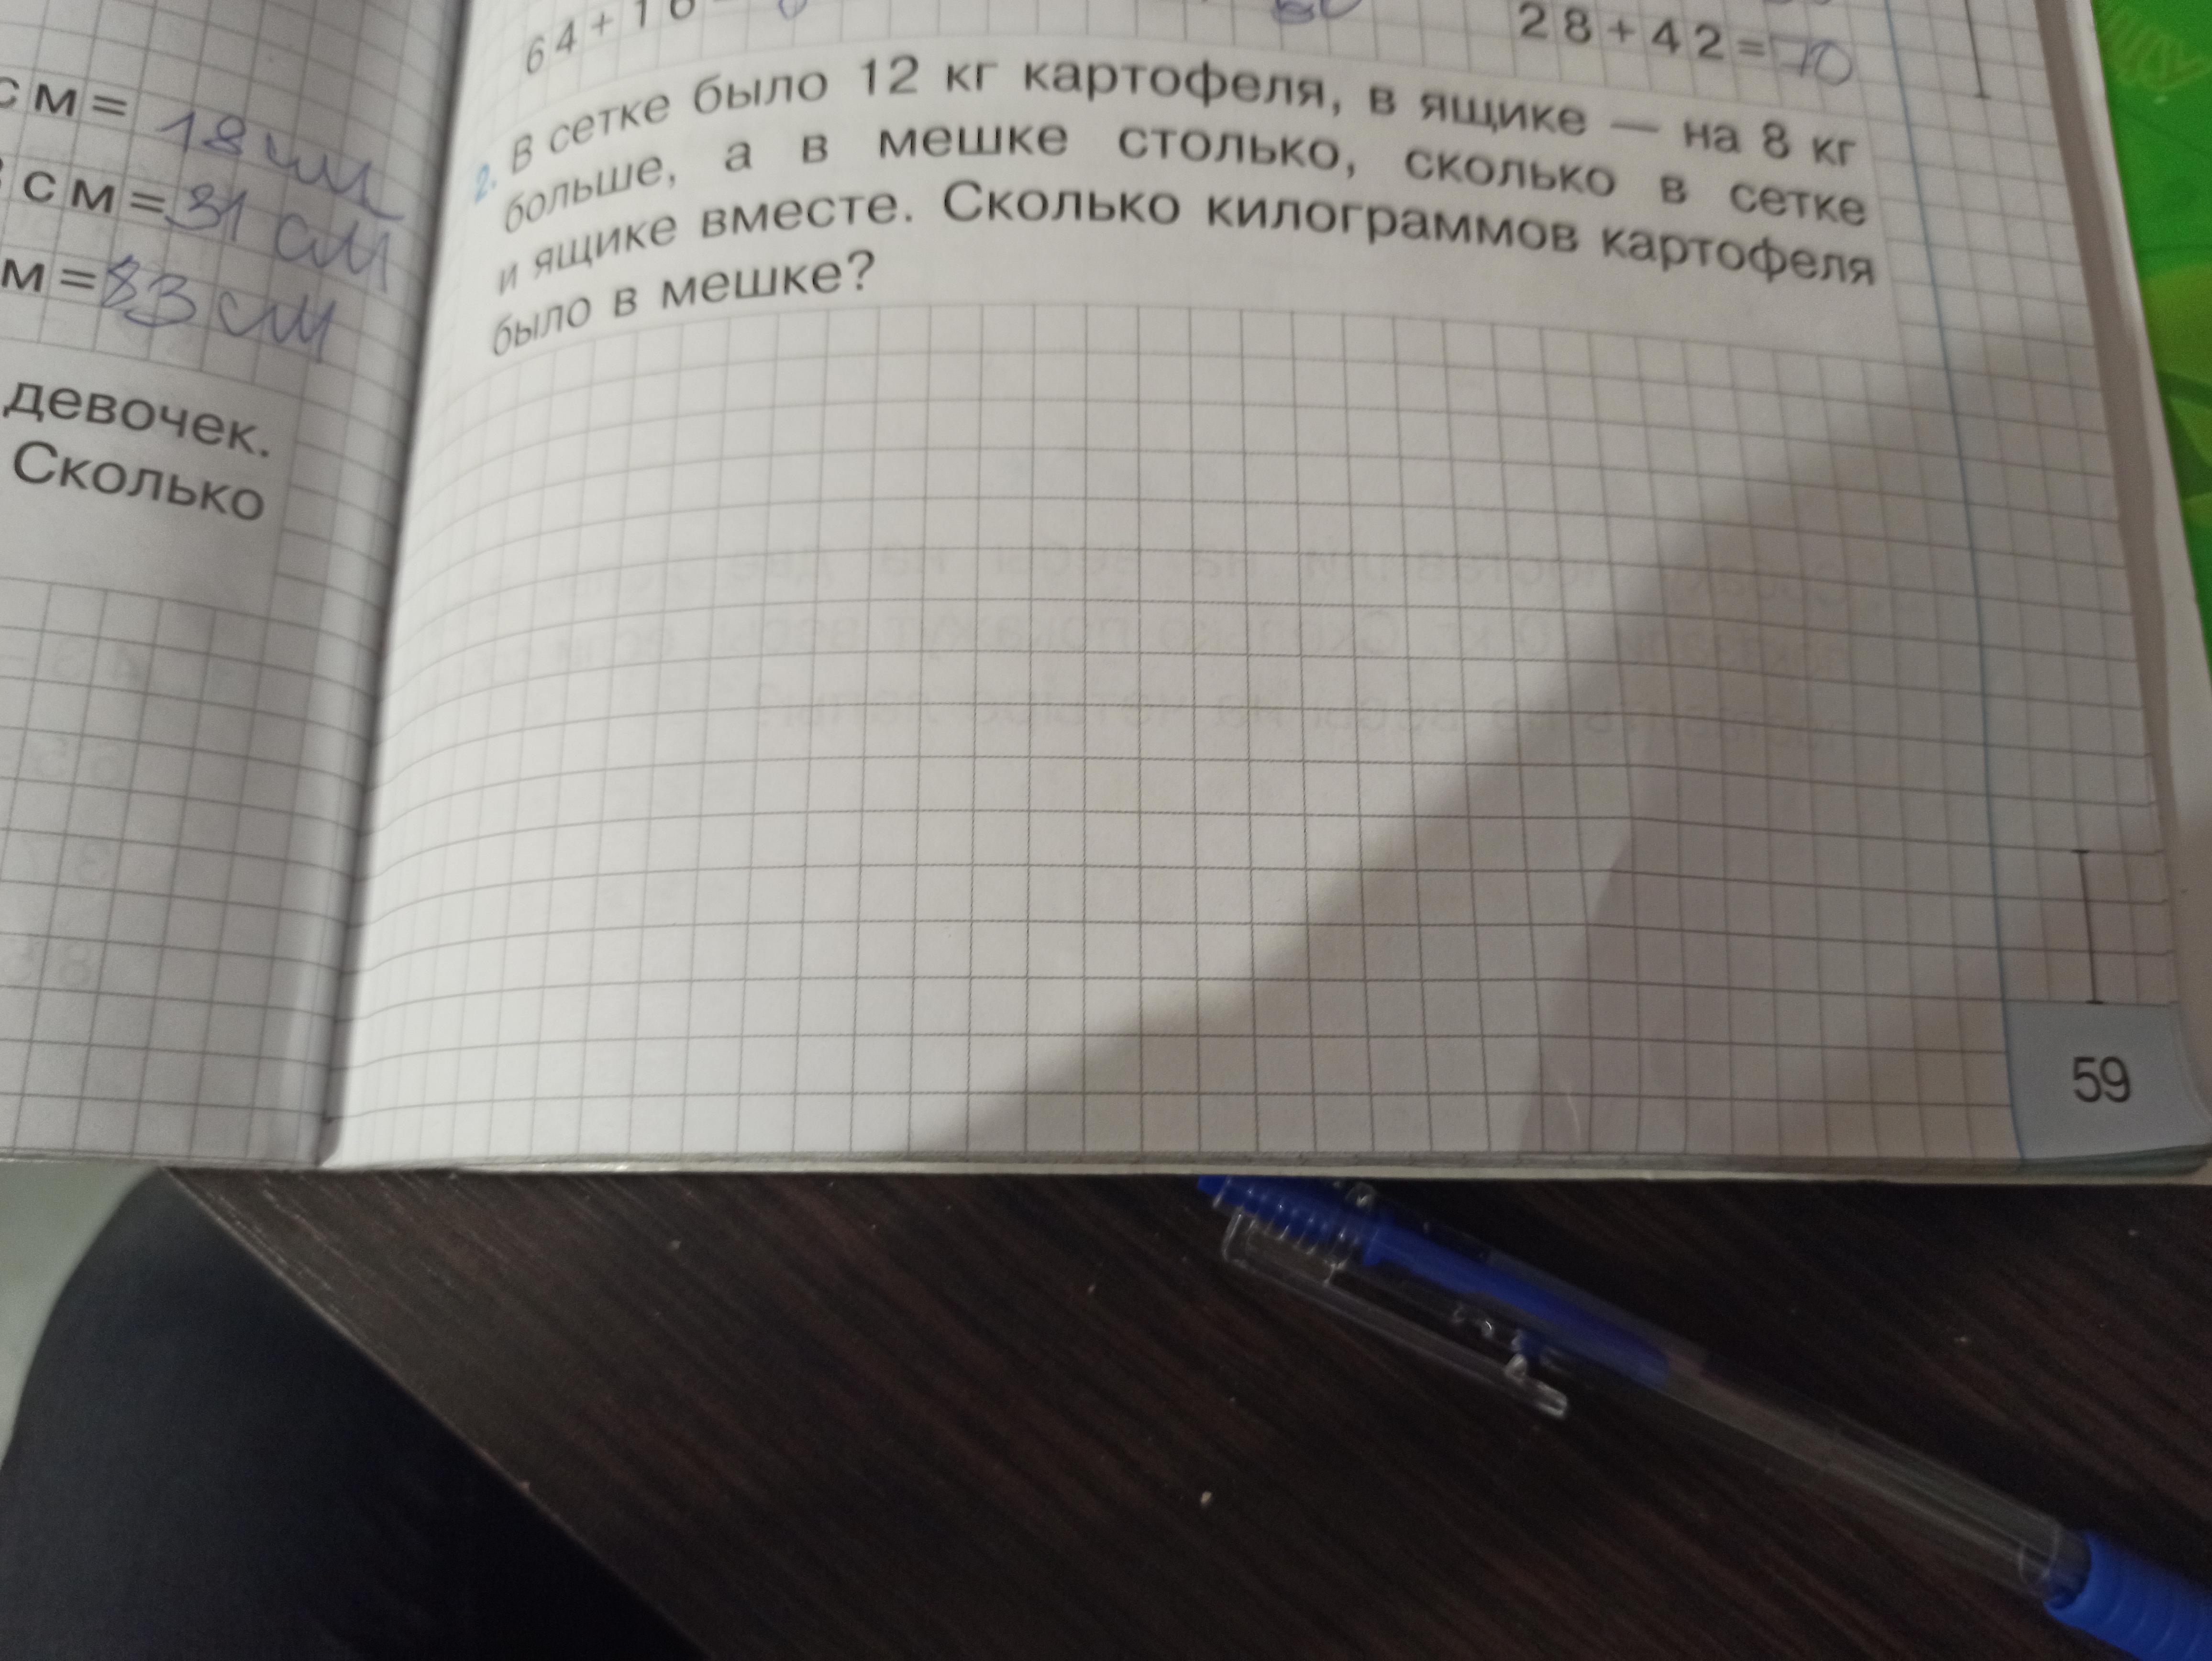 см = 18 см
см = 31 см
м = 83 см
девочек.
Сколько
64 + 16
28 + 42 = 70
2. В сетке было 12 кг картофеля, в ящике — на 8 кг
больше, а в мешке столько, сколько в сетке
и ящике вместе. Сколько килограммов картофеля
было в мешке?
59